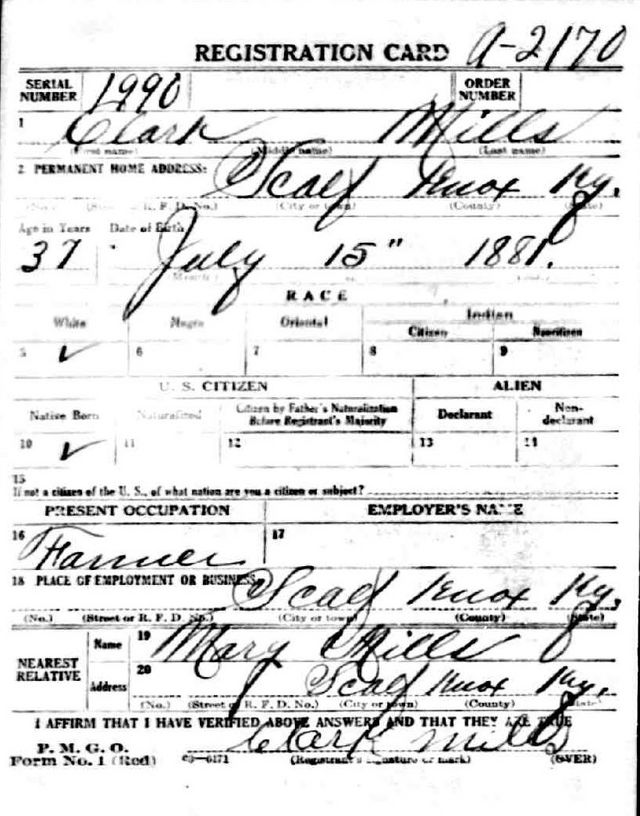 REGISTRATION CARD A-2170
SERIAL NUMBER 1990 ORDER NUMBER
1 Clark Mills
(First name) (Middle name) (Last name)
2 PERMANENT HOME ADDRESS: Scalf Knox Ky.
(No.) (Street or R. F. D. No.) (City or town) (County) (State)
Age in Years Date of Birth
37 July 15" 1881.
(Month.)
RACE
White Negro Oriental Indian
Citizen Noncitizen
5 ✓ 6 7 8 9
U. S. CITIZEN ALIEN
Native Born Naturalized Citizen by Father's Naturalization Before Registrant's Majority Declarant Non-declarant
10 ✓ 11 12 13 14
15
If not a citizen of the U. S., of what nation are you a citizen or subject?
PRESENT OCCUPATION EMPLOYER'S NAME
16 Farmer 17
18 PLACE OF EMPLOYMENT OR BUSINESS: Scalf Knox Ky.
(No.) (Street or R. F. D. No.) (City or town) (County) (State)
NEAREST RELATIVE Name 19 Mary Mills
Address 20 Scalf Knox Ky.
(No.) (Street or R. F. D. No.) (City or town) (County) (State)
I AFFIRM THAT I HAVE VERIFIED ABOVE ANSWERS AND THAT THEY ARE TRUE
P. M. G. O.
Form No. 1 (Red) 03-6171 Clark Mills
(Registrant's signature or mark) (OVER)